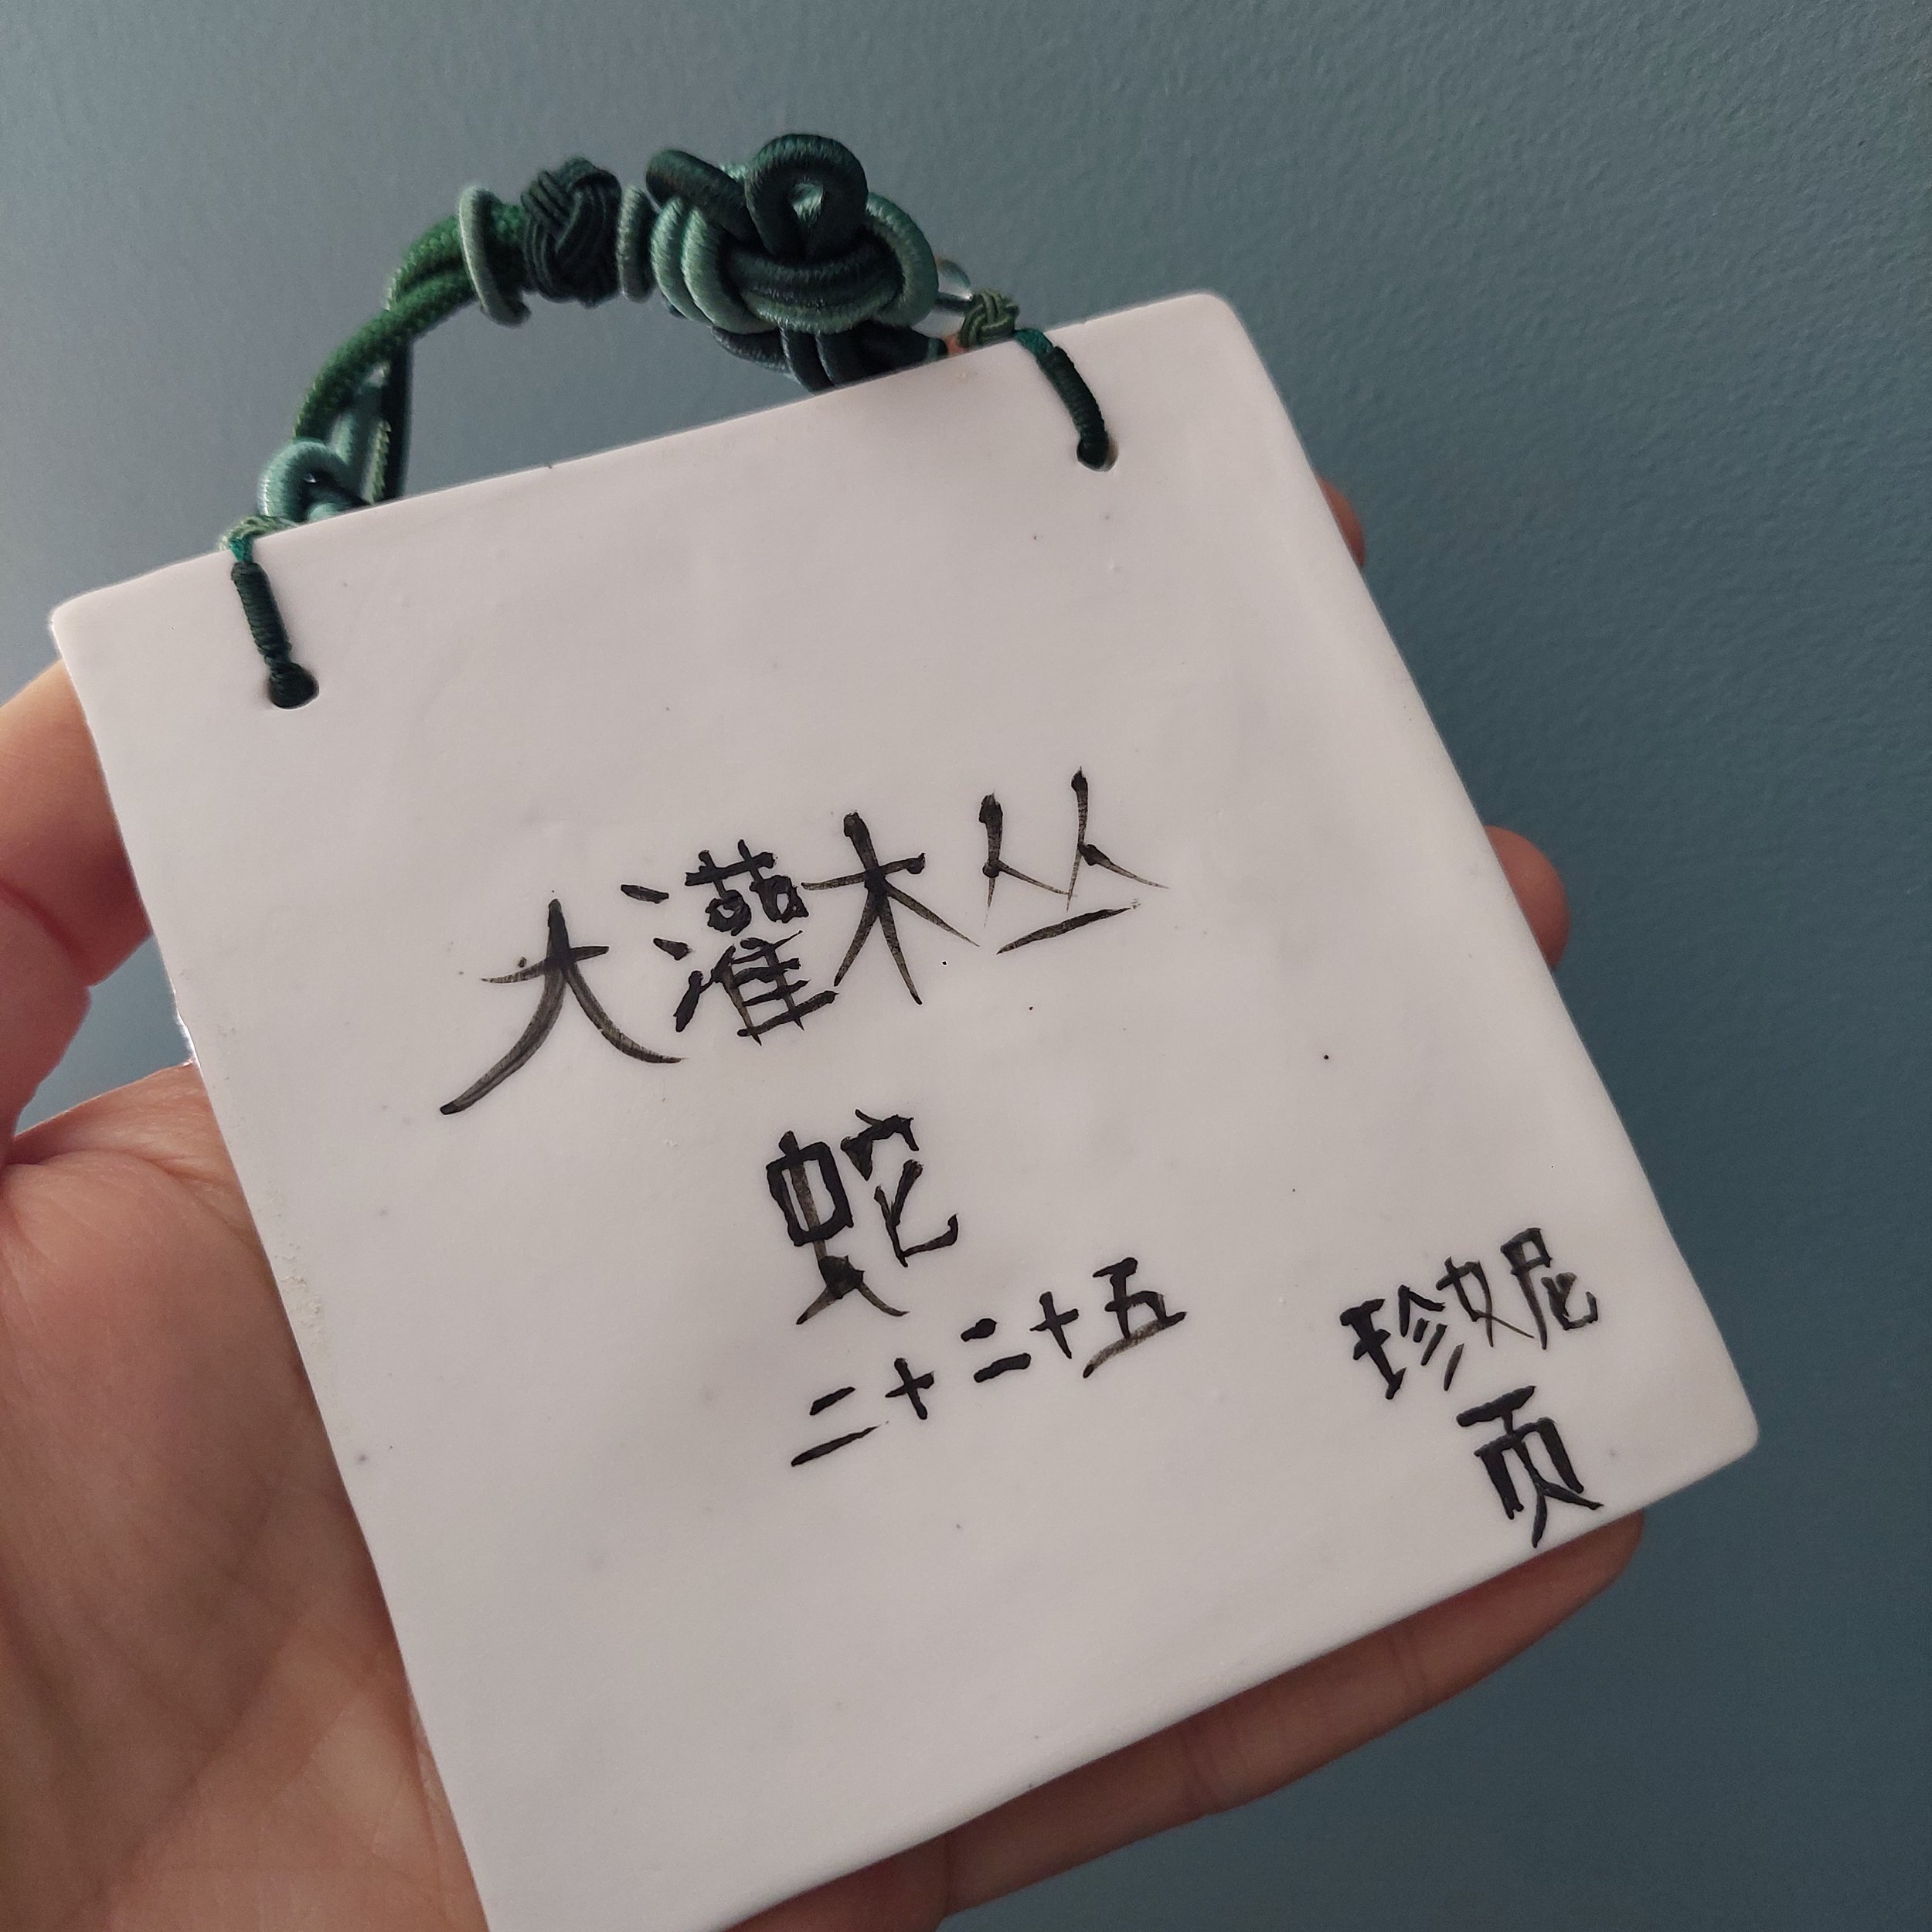 大灌木丛
蛇
二十二十五
珍妮
页